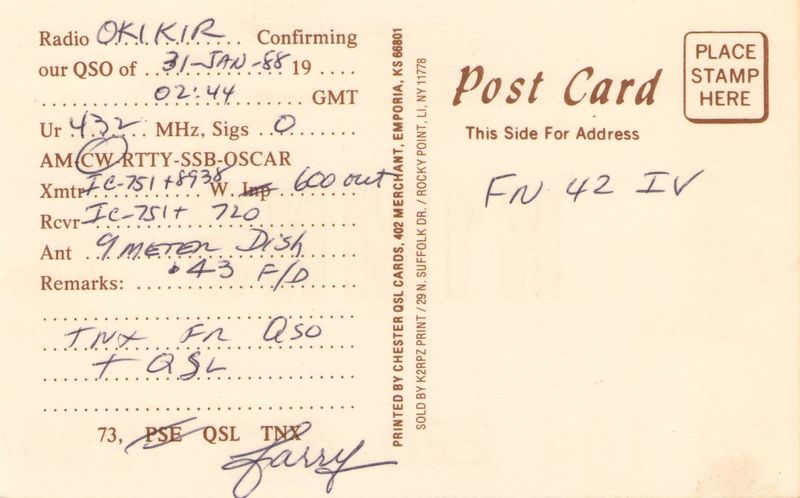 Radio OK1KIR Confirming
our QSO of 31-JAN-88 19
02:44 GMT
Ur 432 MHz, Sigs O
AM-CW-RTTY-SSB-OSCAR
Xmtr IC-751+8938 W. Inp 600 out
Rcvr IC-751+ 720
Ant 9 METER Dish
Remarks: .43 F/D
TNX FR QSO
+ QSL
73, PSE QSL TNX
Larry
PRINTED BY CHESTER QSL CARDS, 402 MERCHANT, EMPORIA, KS 66801
SOLD BY K2RPZ PRINT / 29 N. SUFFOLK DR. / ROCKY POINT, LI, NY 11778
Post Card
This Side For Address
PLACE
STAMP
HERE
FN 42 IV